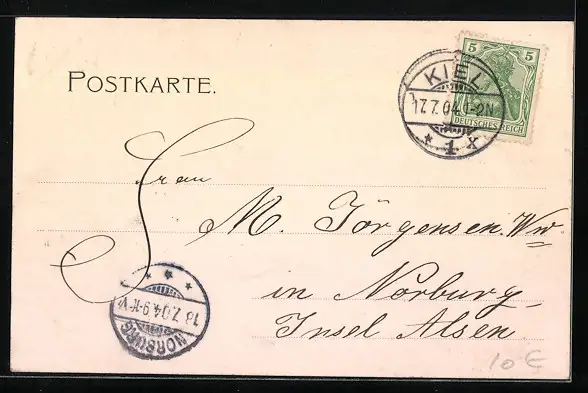 POSTKARTE.
5 5
DEUTSCHES REICH
KIEL
17.7.04. 1-2N
* 1 X
Frau
M. Jörgensen. Ww
in Norburg
Insel Alsen.
* * *
18.7.04. 9-10V
NORBURG
10 €